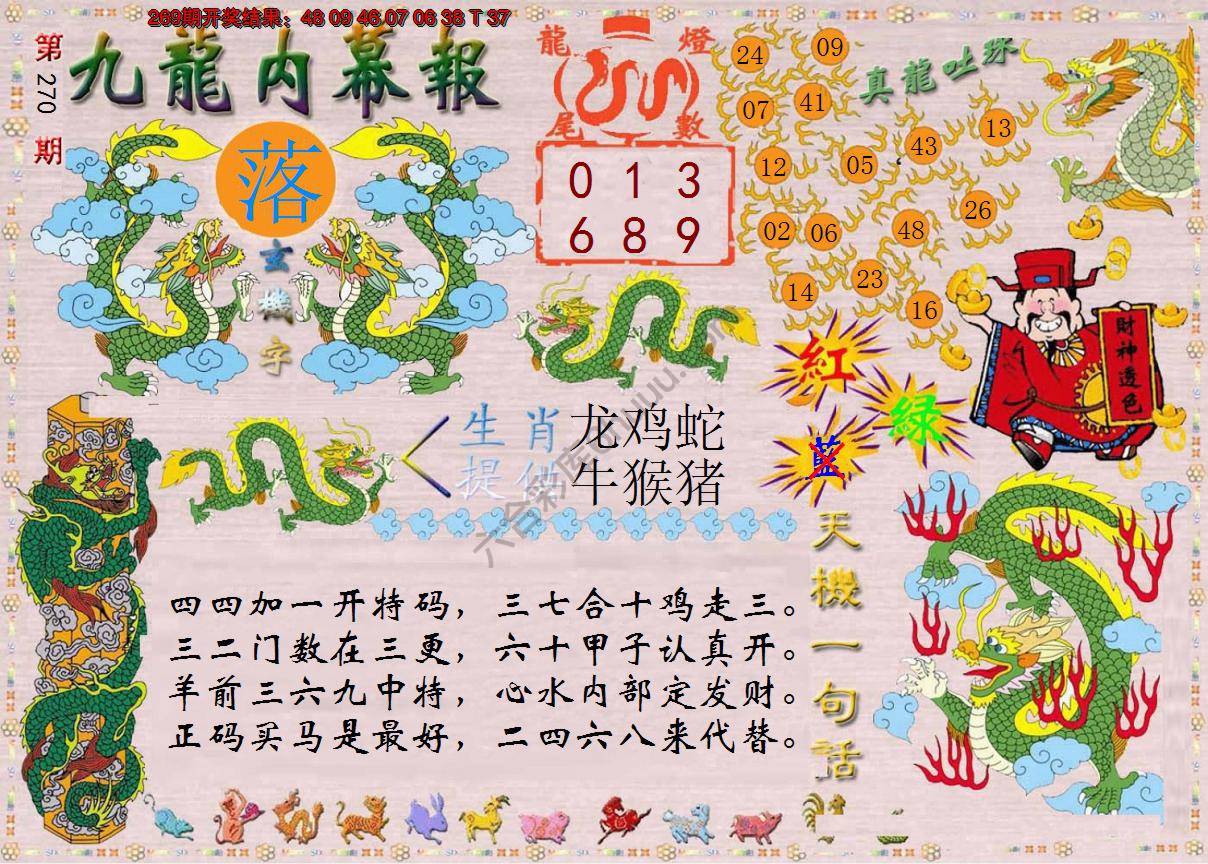 269期开奖结果：48 09 46 07 06 38 T 37
第270期
九龍内幕報
落
玄機字
龍燈
尾數
0 1 3
6 8 9
真龍吐珠
24 09
07 41
12 05 43 13
02 06 48 26
14 23 16
紅
綠
藍
財神透色
生肖 龙鸡蛇
提供 牛猴猪
天機一句話
四四加一开特码，三七合十鸡走三。
三二门数在三更，六十甲子认真开。
羊前三六九中特，心水内部定发财。
正码买马是最好，二四六八来代替。